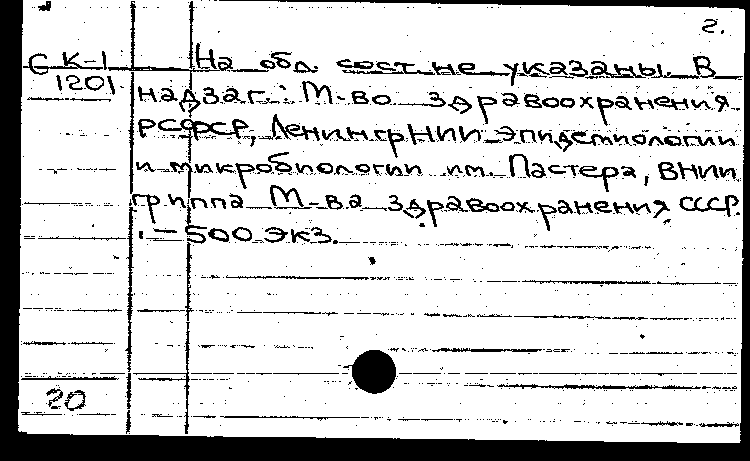 2.
С К-1
1201
На обл. сост. не указаны. В
надзаг.: М-во здравоохранения
РСФСР, Ленингр НИИ эпидемиологии
и микробиологии им. Пастера, ВНИИ
гриппа М-ва здравоохранения СССР.
. — 500 экз.
20